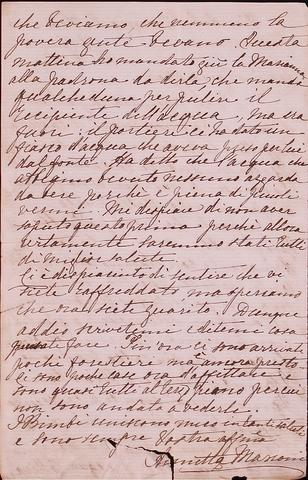 che beviamo, che nemmeno la
povera gente bevano. Questa
mattina ho mandato giù la Maria
alla padrona da dirle, che manda
qualcheduno per pulire il
recipiente dell'acqua, ma era
fuori: il portiere ci ha dato un
fiasco d'acqua che aveva preso per lui
dal fonte. Ha detto che l'acqua che
abbiamo bevuto nessuno azzarda
da bere perchè è piena di piccoli
vermi. Mi dispiace di non aver
saputo questo prima perchè allora
certamente saremmo stati tutti
di miglior salute.
Ci è dispiaciuto di sentire che vi
siete raffreddato ma speriamo
che ora siete guarito. Dunque
addio scrivetemi e ditemi cosa
fate. Per ora ci sono arrivati
poche forestiere ma è ancora presto
Ci sono poche case ora da affittare e
sono quasi tutti al terzo piano percui
non sono andata a vederle.
I Bimbi uniscono meco in tanti saluti
e sono sempre vostra affma
Annetta